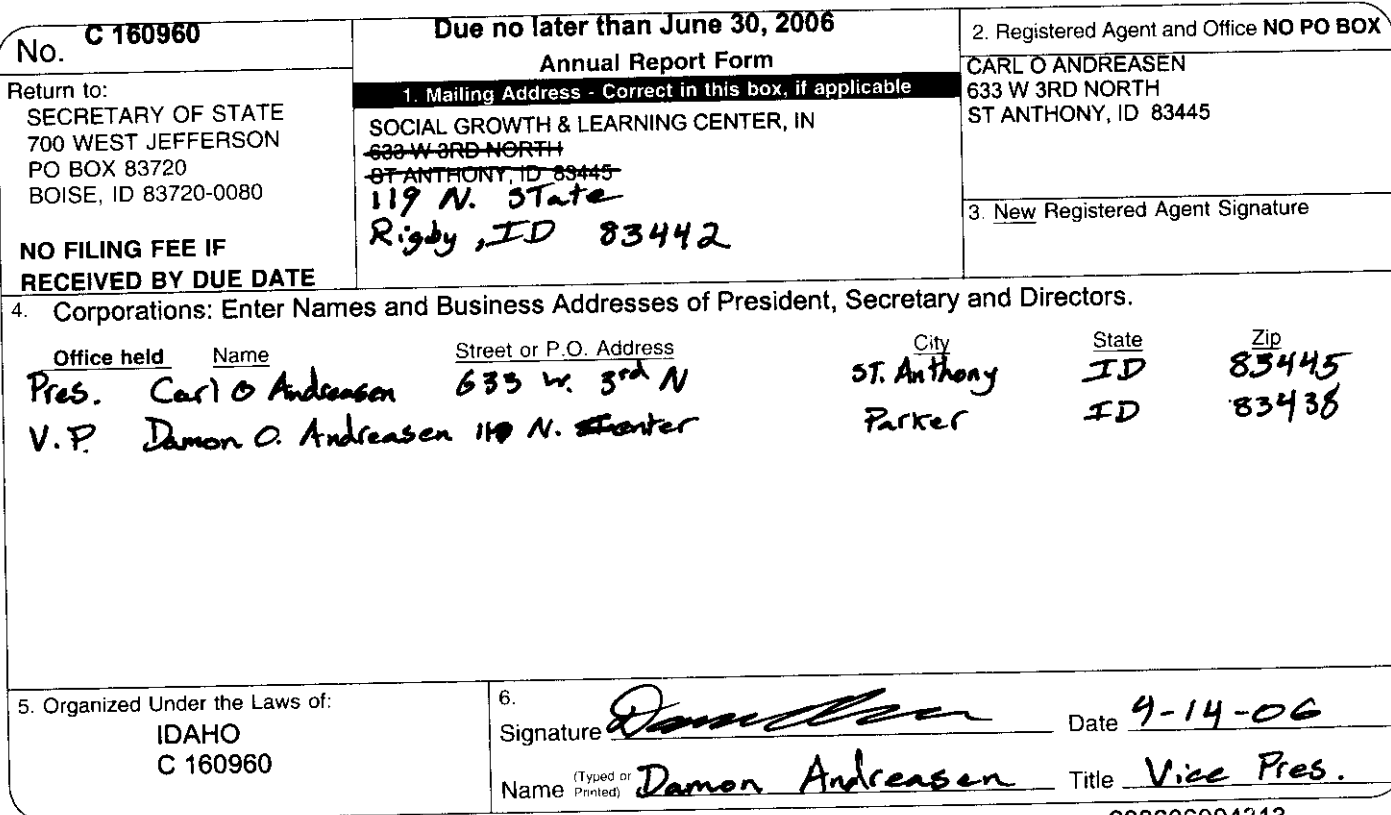 No. C 160960
Return to:
SECRETARY OF STATE
700 WEST JEFFERSON
PO BOX 83720
BOISE, ID 83720-0080
NO FILING FEE IF
RECEIVED BY DUE DATE
Due no later than June 30, 2006
Annual Report Form
1. Mailing Address - Correct in this box, if applicable
SOCIAL GROWTH & LEARNING CENTER, IN
633 W 3RD NORTH
ST ANTHONY, ID 83445
119 N. STate
Rigby, ID 83442
2. Registered Agent and Office NO PO BOX
CARL O ANDREASEN
633 W 3RD NORTH
ST ANTHONY, ID 83445
3. New Registered Agent Signature
4. Corporations: Enter Names and Business Addresses of President, Secretary and Directors.
Office held Name Street or P.O. Address City State Zip
Pres. Carl O Andreasen 633 W. 3rd N ST. Anthony ID 83445
V.P. Damon O. Andreasen N. Parker ID 83438
5. Organized Under the Laws of:
IDAHO
C 160960
6.
Signature Date 9-14-06
Name (Typed or Printed) Damon Andreasen Title Vice Pres.